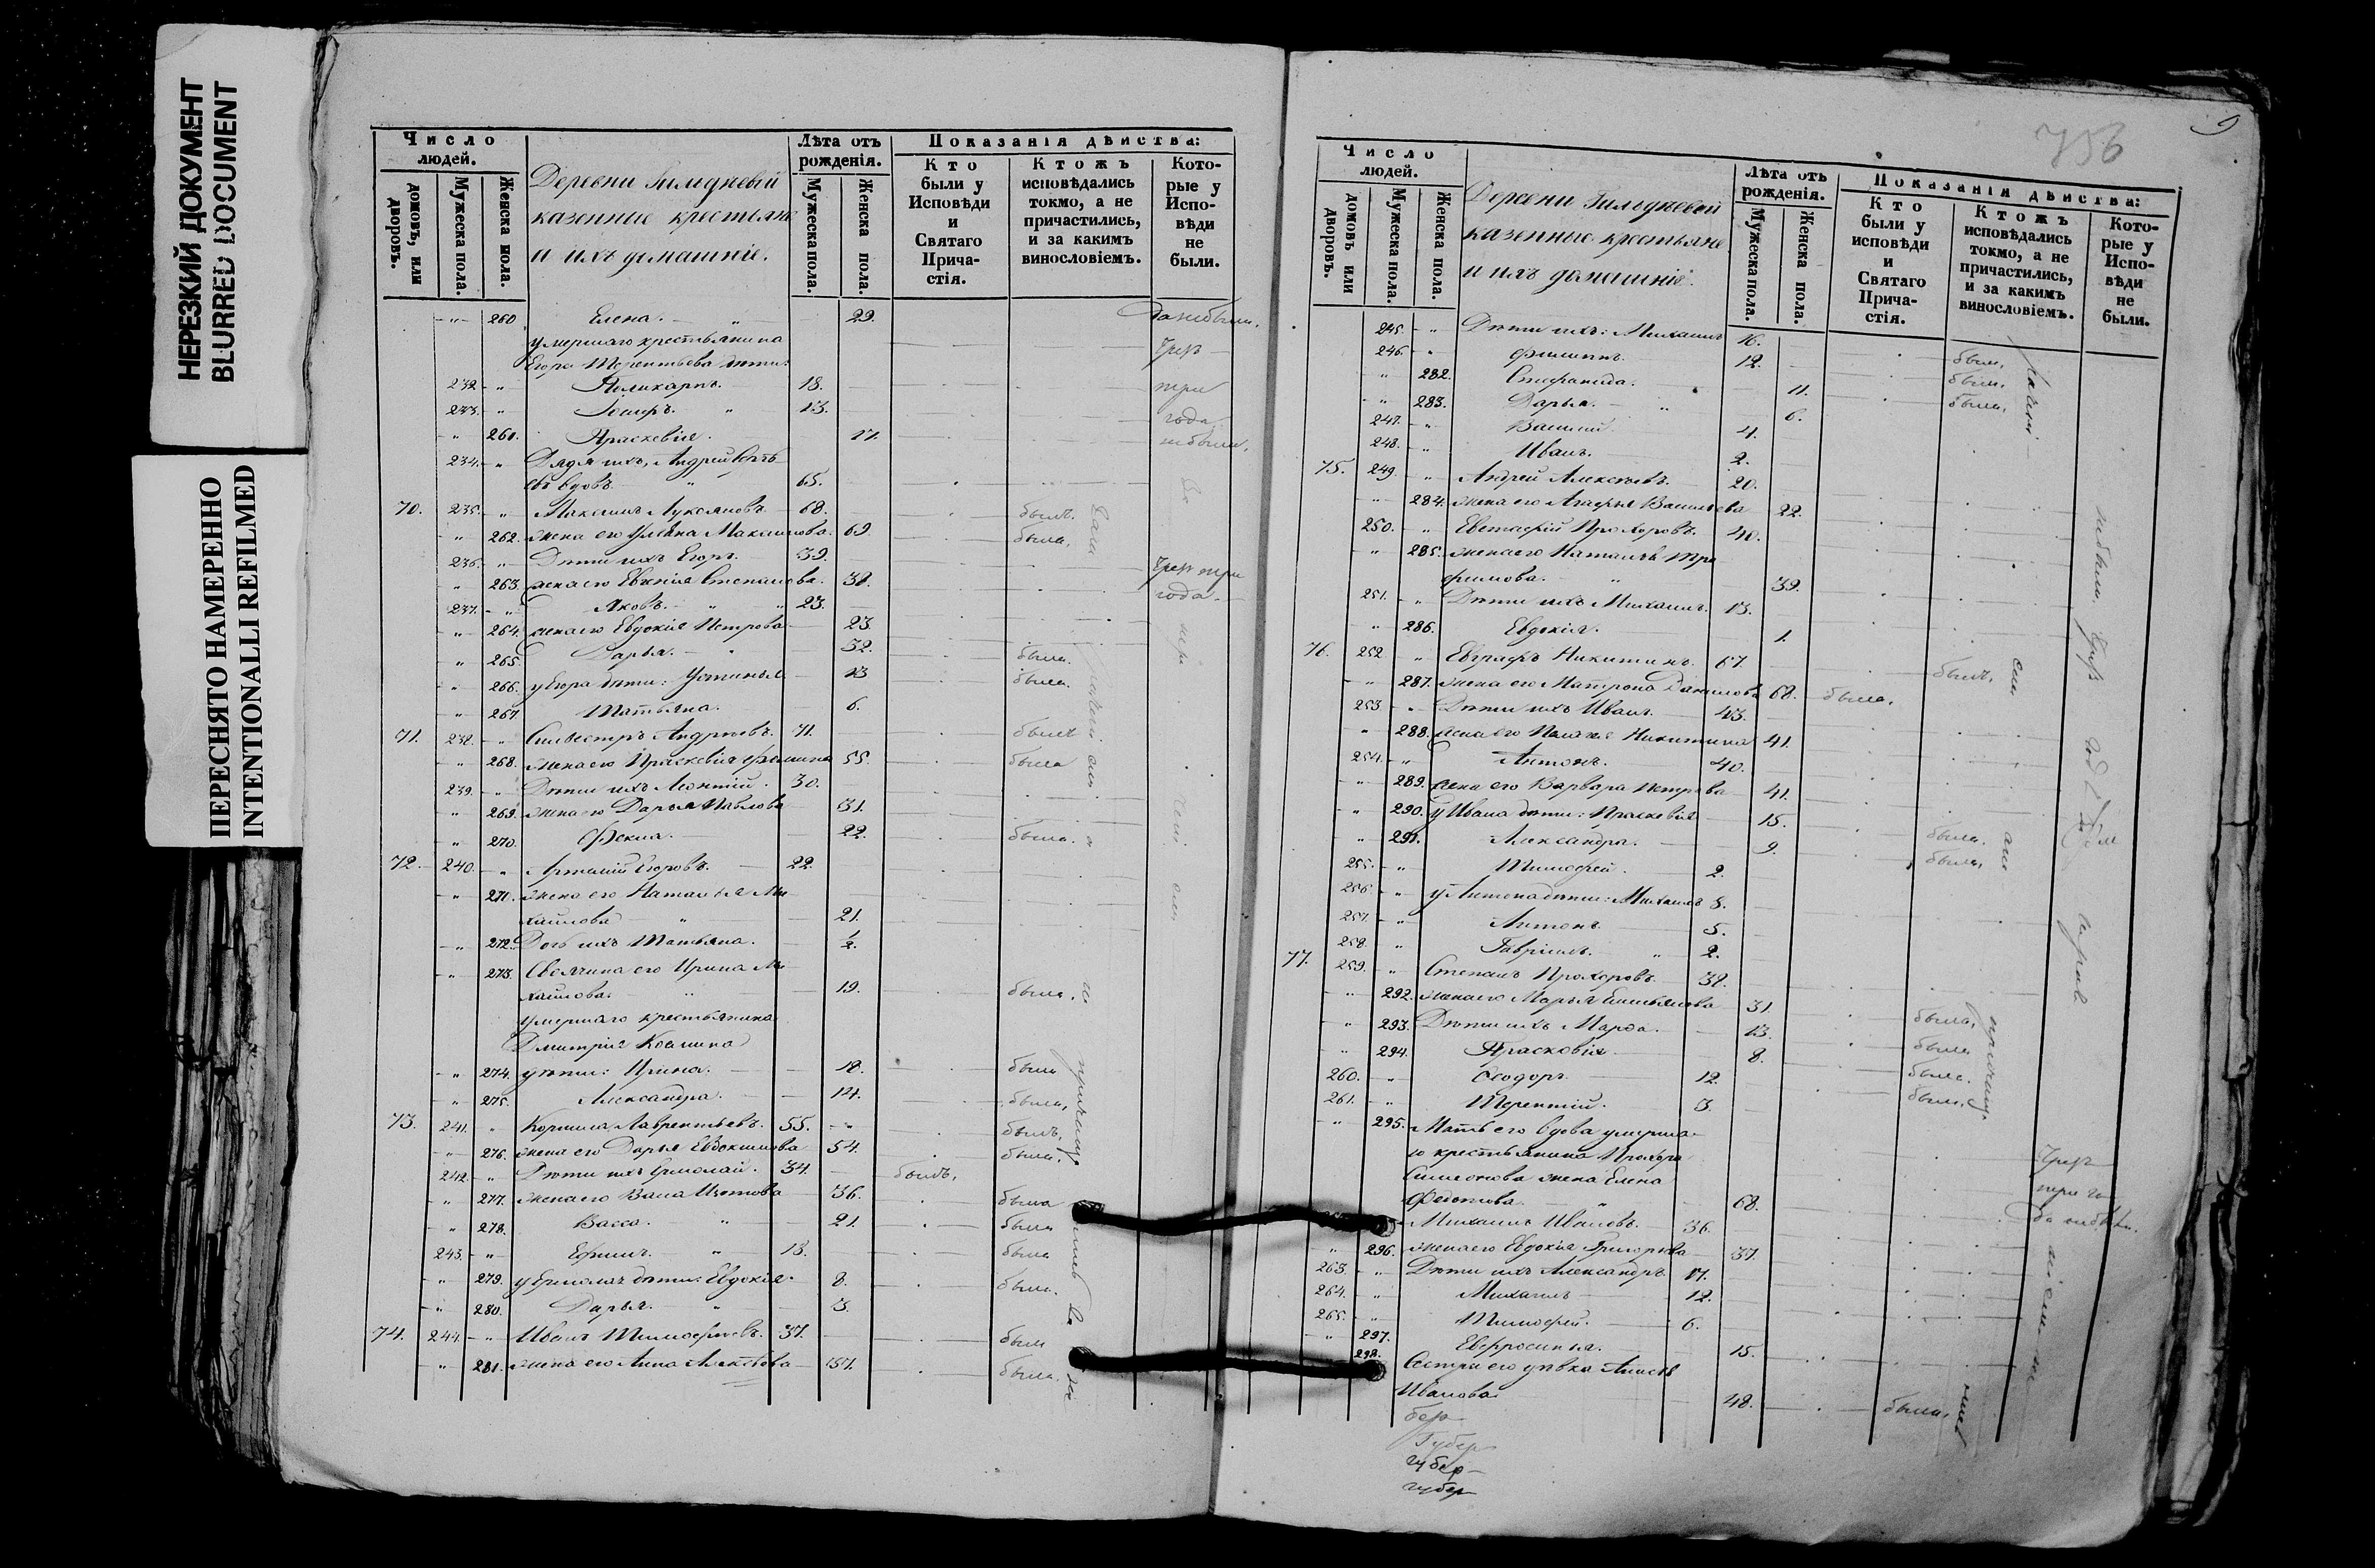 НЕРЕЗКИЙ ДОКУМЕНТ
BLURRED DOCUMENT
ПЕРЕСНЯТО НАМЕРЕННО
INTENTIONALLI REFILMED
Число людей.
домовъ, или дворовъ.
Мужеска пола.
Женска пола.
казенные крестьяне
и ихъ домашніе.
Лѣта отъ рожденія.
Мужеска пола.
Женска пола.
Показанія дѣйства:
Кто были у Исповѣди и Святаго Прича-стія.
Ктожъ исповѣдались токмо, а не причастились, и за какимъ винословіемъ.
Кото-рые у Испо-вѣди не были.
260 Елена. 29.
умершаго крестьянина
Егора Терентьева дѣти:
232 Поликарпъ. 18.
233. Іосифъ. 13.
261. Праскевія. 17.
234. Дядя ихъ, Андрей
въ вдовъ 65.
70. 235. Максимъ Лукояновъ 68. былъ.
262. жена его Ульяна Максимова. 69. была.
236. Дѣти ихъ Егоръ. 39.
263. жена его Евгенія Степанова. 38.
237. Яковъ. 23.
264. жена его Евдокія Петрова 23.
265. Дарья. 32. была.
266. у Егора дѣти: Устинья 13 была.
267. Татьяна. 6.
71. 238. Сильвестръ Андреевъ. 71. былъ
268. жена его Праскевія Фомина 55. была
239. Дѣти ихъ Леонтій. 30.
269. жена его Дарья Павлова 31.
270. Фекла. 22. была.
72. 240. Артемій Егоровъ. 22.
271. жена его Наталья Ми
хайлова 21.
272. Дочь ихъ Татьяна. ½.
273. Своячина его Ирина Ми
хайлова. 19. была.
умершаго крестьянина
Дмитрія
274. дѣти: Ирина. 18. была
275. Александра. 14. была,
73. 241. Корнила Лаврентьевъ. 55. былъ,
276. жена его Дарья Евдокимова 54. была.
242. Дѣти ихъ Ермолай. 34. былъ,
277. жена его Васа Изотова 36. была
278. Васса. 21. была
243. Ефимъ. 13. была
279. у Ермолая дѣти: Евдокія. 8. была.
280. Дарья. 3.
74. 244. Иванъ Тимофеевъ. 37. были
281. жена его Анна Алексѣева 37. была.
756
9
Число людей.
домовъ или дворовъ.
Мужеска пола.
Женска пола.
казенные крестьяне
и ихъ домашніе.
Лѣта отъ рожденія.
Мужеска пола.
Женска пола.
Показанія дѣйства:
Кто были у исповѣди и Святаго Прича-стія.
Ктожъ исповѣдались токмо, а не причастились, и за какимъ винословіемъ.
Кото-рые у Испо-вѣди не были.
245. Дѣти ихъ: Михаилъ 16.
246. Филиппъ. 12. были,
282. Стефанида. 11. была.
283. Дарья. 6. была,
247. Василій. 4.
248. Иванъ. 2.
75. 249. Андрей Алексѣевъ. 20.
284. жена его Агафья Васильева 22.
250. Евстафій Прохоровъ. 40.
285. жена его Наталья Тро
фимова. 39.
251. Дѣти ихъ Михаилъ. 13.
286. Евдокія. 1.
76. 252 Евграфъ Никитинъ. 67. былъ,
287. жена его Матрона Данилова 68. была,
253. Дѣти ихъ Иванъ. 43.
288. жена его Пелагея Никитина 41.
254. Антонъ. 40.
289. жена его Варвара Петрова 41.
290. у Ивана дѣти: Праскевія 15. была.
291. Александра. 9. была,
255. Тимофей. 2.
256. у Антона дѣти: Михаилъ 8.
257. Антонъ 5.
258. Гавріилъ. 2.
77. 259. Степанъ Прохоровъ. 32.
292. жена его Марья Емельянова 31. была,
293. Дѣти ихъ Марѳа. 13. была
294. Прасковія 8. была.
260. Ѳеодоръ 12. были,
261. Терентій. 3.
295. Мать его вдова умерша-
го крестьянина Прохора
Симеонова жена Елена
Федотова 68.
Михаилъ Ивановъ. 36.
296. жена его Евдокія Григорьева 37
263. Дѣти ихъ Александръ. 17.
264. Михаилъ 12.
265. Тимофей. 6.
297. Евфросинья. 15.
298. Сестра его дѣвка
Иванова 48. была,
бер
Губер
губер
губер